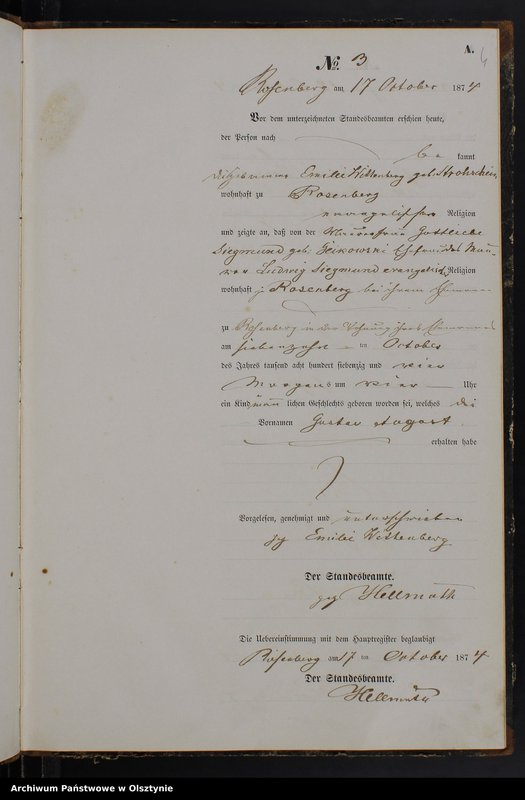 A.
4
No. 3
Rosenberg am 17 October 1874
Vor dem unterzeichneten Standesbeamten erschien heute,
der Person nach
be kannt
die Hebamme Emilie Wittenberg geb. Strohschein
wohnhaft zu Rosenberg
evangelischer Religion
und zeigte an, daß von der Maurerfrau Gottliebe
Siegmund geb. Ehefrau des Mau-
rer Ludwig Siegmund evangelisch Religion
wohnhaft z Rosenberg bei ihrem Ehemann
zu Rosenberg in der Wohnung ihres Ehemannes
am siebenzehn ten October
des Jahres tausend acht hundert siebenzig und vier
Morgens um vier Uhr
ein Kind männ lichen Geschlechts geboren worden sei, welches die
Vornamen Gustav August
erhalten habe
Vorgelesen, genehmigt und unterschrieben
gez Emilie Wittenberg
Der Standesbeamte.
gez Hellmuth
Die Uebereinstimmung mit dem Hauptregister beglaubigt
Rosenberg am 17 ten October 1874
Der Standesbeamte.
Hellmuth
Archiwum Państwowe w Olsztynie